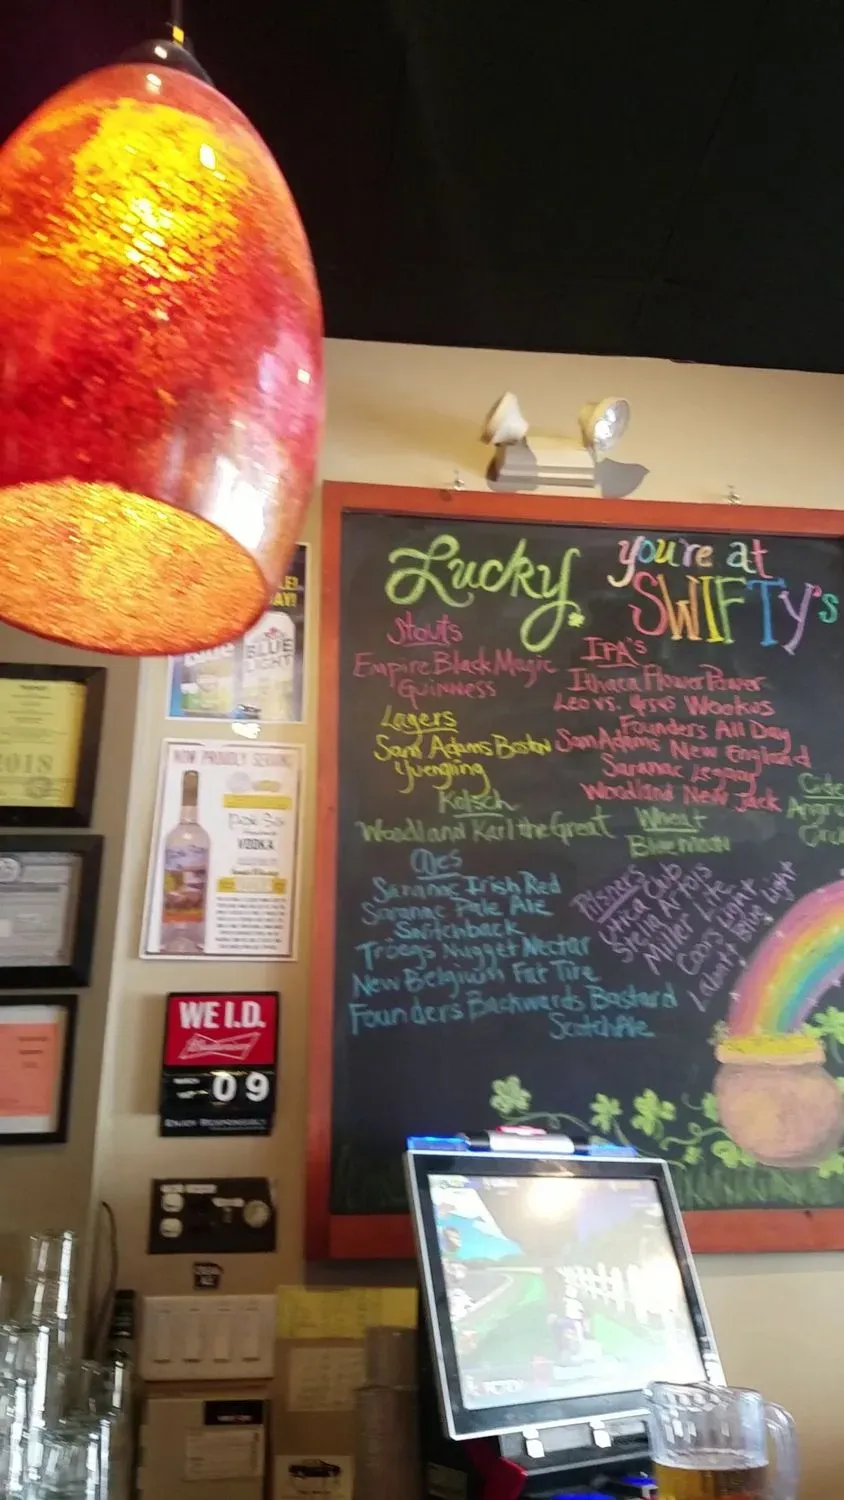 Lucky you're at
SWIFTY's
Stouts
Empire Black Magic
Guinness
Lagers
Sam Adams Boston
Yuengling
Kolsch
Woodland Karl the Great
Ales
Saranac Irish Red
Saranac Pale Ale
Switchback
Tröegs Nugget Nectar
New Belgium Fat Tire
Founders Backwards Bastard
Scotch Ale
IPA's
Ithaca Flower Power
Leo vs. Ursus Wookus
Founders All Day
Sam Adams New England
Saranac Legacy
Woodland New Jack
Wheat
Blue Moon
Pilsners
Utica Club
Stella Artois
Miller Lite
Coors Light
Labatt Blue Light
Angry
BLUE
LIGHT
2018
NOW PROUDLY SERVING
VODKA
WE I.D.
Budweiser
09
ENJOY RESPONSIBLY